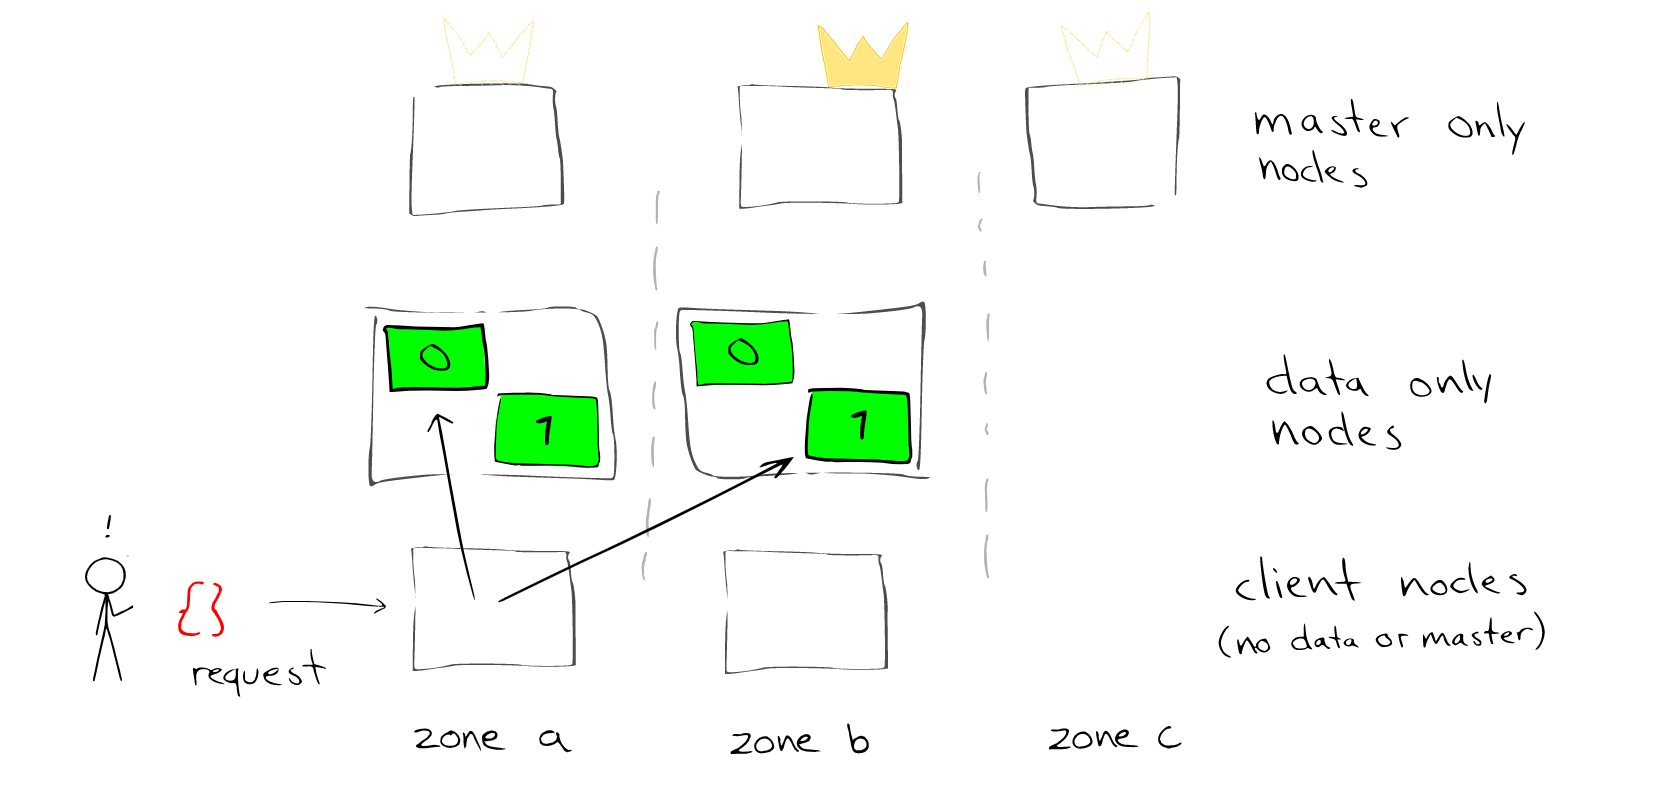 master only
nodes
0
1
0
1
data only
nodes
!
{}
request
client nodes
(no data or master)
zone a
zone b
zone c